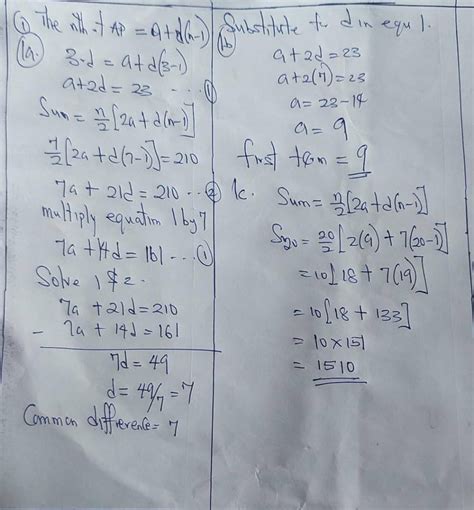 ① The nth of AP = a+d(n-1)
1a. 3rd = a+d(3-1)
a+2d = 23 --- ①
Sum = n/2[2a+d(n-1)]
7/2[2a+d(7-1)]=210
7a + 21d = 210 -- ②
multiply equation 1 by 7
7a + 14d = 161 --- ①
Solve 1 & 2.
7a + 21d = 210
- 7a + 14d = 161
7d = 49
d = 49/7 = 7
Common difference = 7
Substitute for d in equ 1.
1b
a + 2d = 23
a + 2(7) = 23
a = 23 - 14
a = 9
first term = 9
1c. Sum = n/2[2a+d(n-1)]
S20 = 20/2[2(9) + 7(20-1)]
= 10[18 + 7(19)]
= 10[18 + 133]
= 10 x 151
= 1510